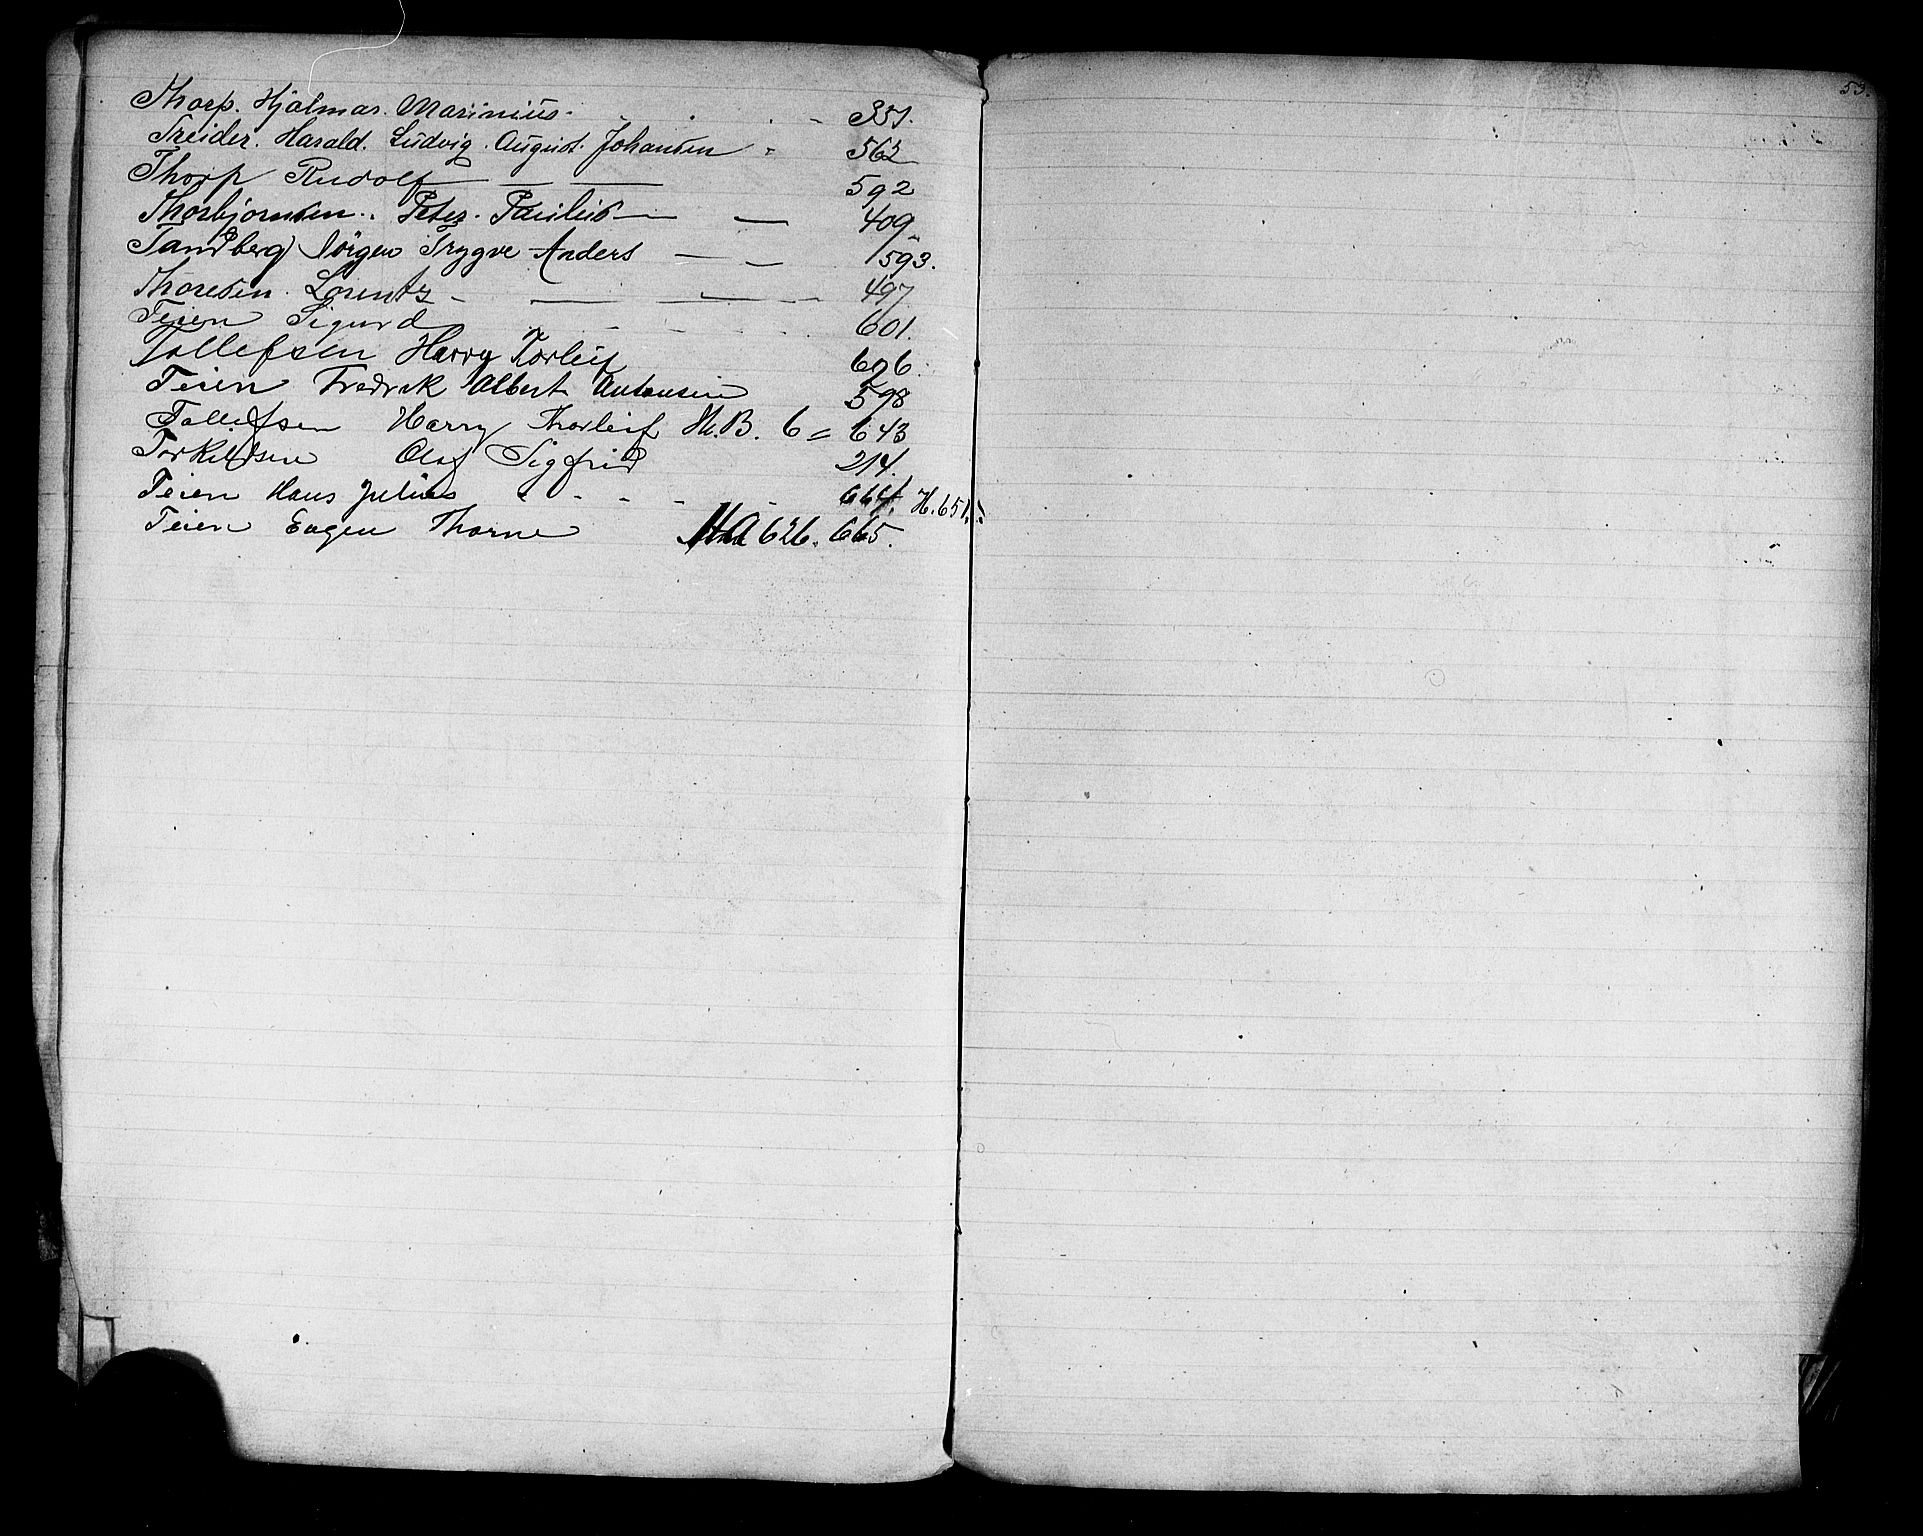 Thorp. Hjalmar. Marinius. - 351.
Treider. Harald. Ludvig. August. Johansen - 562
Thorp Rudolf — — 592
Thorbjørnsen. Peter. Paulus — — 409
Sandberg Jörgen Trygve Anders — — 593.
Thoresen. Lorentz - — — 497
Teien Sigurd 601.
Tollefsen Harry Torleif 606.
Teien Fredrik Albert Antonsen 598
Tollefsen Harry Thorleif H.B. 6 = 643
Torkildsen Olaf Sigfrid 214.
Teien Hans Julius - - - - 664. H. 651.
Teien Eugen Thorne HA 626. 665.
53.